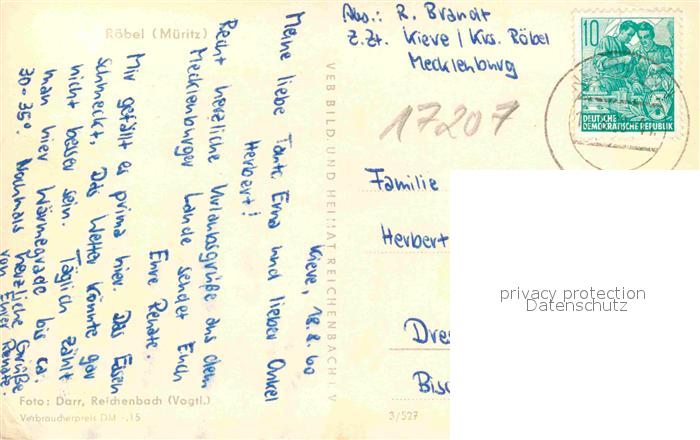 Röbel (Müritz)
Kieve, 18.8.60
Meine liebe Tante Erna und lieber Onkel
Herbert!
Recht herzliche Urlaubsgrüße aus dem
Mecklenburger Lande sendet Euch
Eure Renate.
Mir gefällt es prima hier. Das Essen
schmeckt. Das Wetter könnte gar
nicht besser sein. Täglich zählt
man hier Wärmegrade bis ca.
30-35°. Nochmals herzliche Grüße
von Eurer Renate.
Foto: Darr, Reichenbach (Vogtl.)
Verbraucherpreis DM -,15
VEB BILD UND HEIMAT REICHENBACH I. V
3/527
Abs.: R. Brandt
z.Zt. Kieve / Krs. Röbel
Mecklenburg
10
5
DEUTSCHE
DEMOKRATISCHE REPUBLIK
17207
Familie
Herbert
Dres
Bisc
privacy protection
Datenschutz